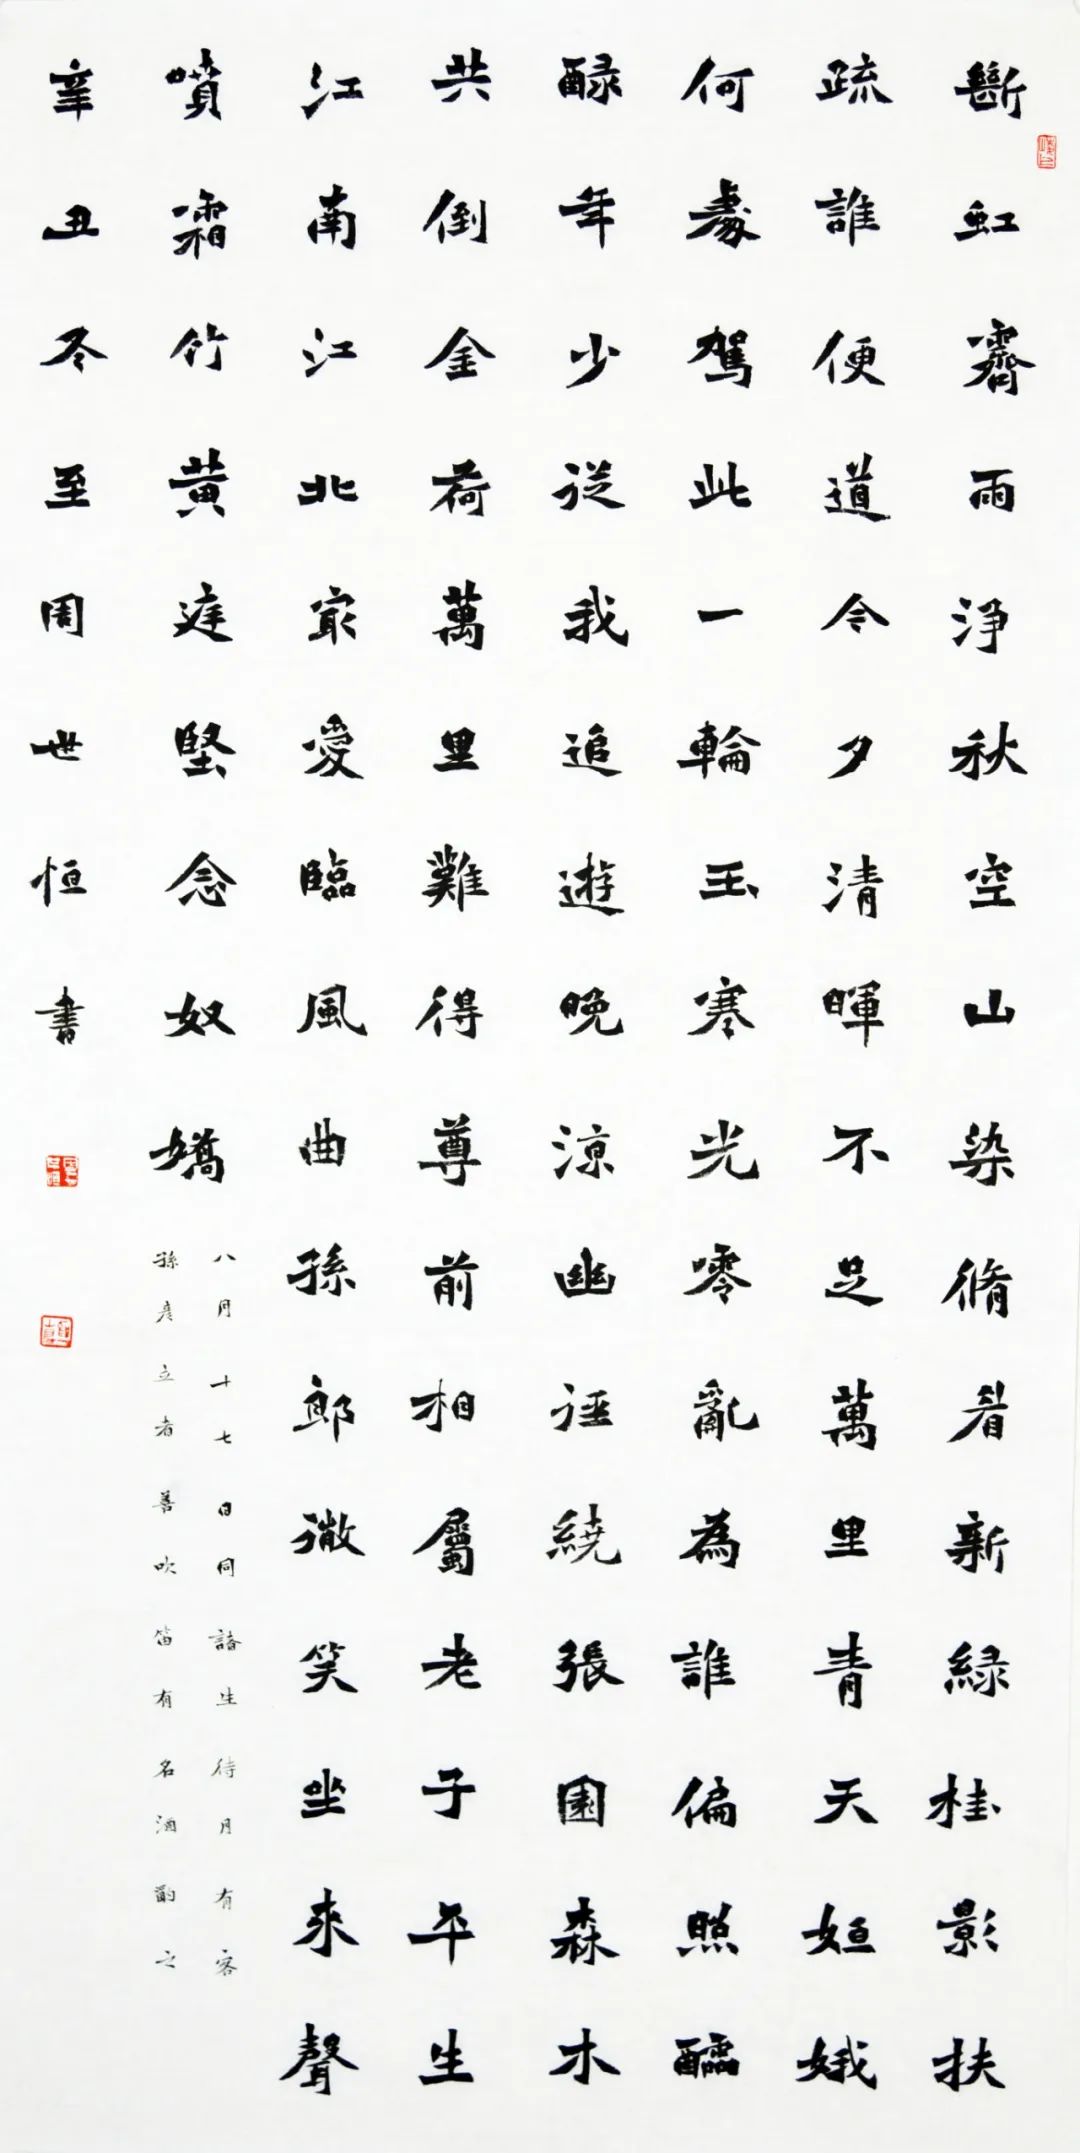 斷虹霽雨淨秋空山染脩眉新綠桂影扶
疏誰便道今夕清暉不足萬里青天姮娥
何處駕此一輪玉寒光零亂為誰偏照醽
醁年少從我追遊晚涼幽徑繞張園森木
共倒金荷萬里難得尊前相屬老子平生
江南江北最愛臨風曲孫郎微笑坐來聲
噴霜竹黃庭堅念奴嬌
八月十七日同諸生待月有客
孫彥立者善吹笛有名酒酌之
辛丑冬至周世恒書